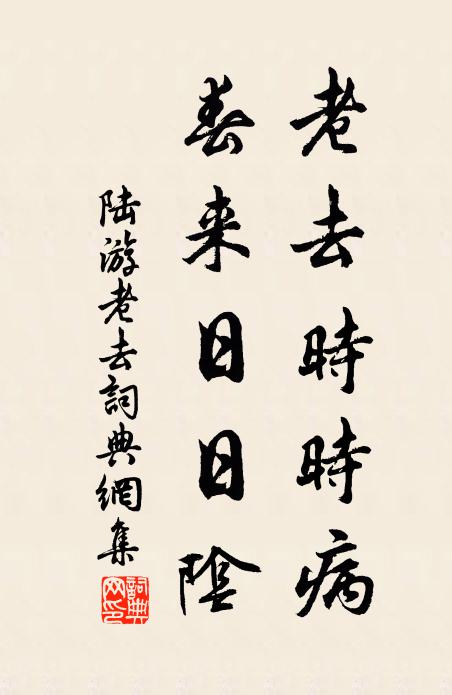 老去時時病
春来日日陰
陆游老去詞典網集
詞典网印